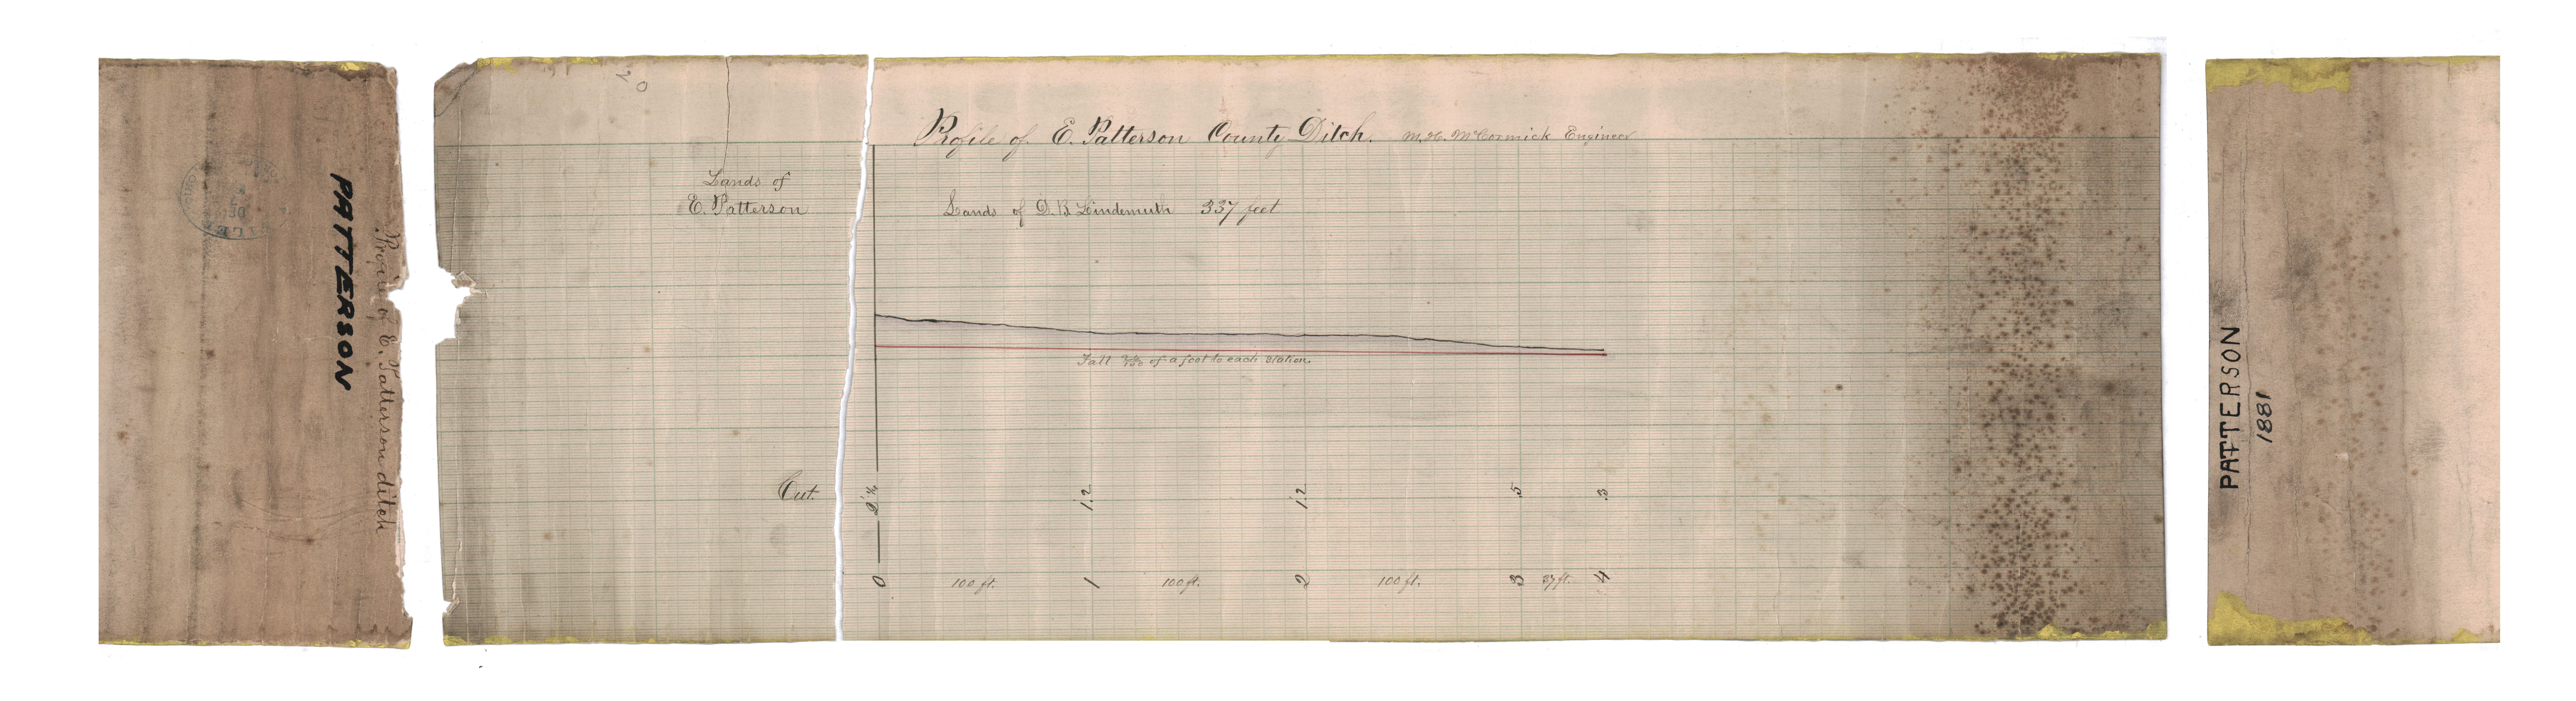 PATTERSON
E. Patterson ditch
Profile of E. Patterson County Ditch. M.H. McCormick Engineer
Lands of
E. Patterson
Lands of D.B. Lindemuth 337 feet
of a foot to each station.
Cut. 1.2 1.2 .5 .3
0 100 ft. 1 100 ft. 2 100 ft. 3 37 ft. 4
PATTERSON
1881